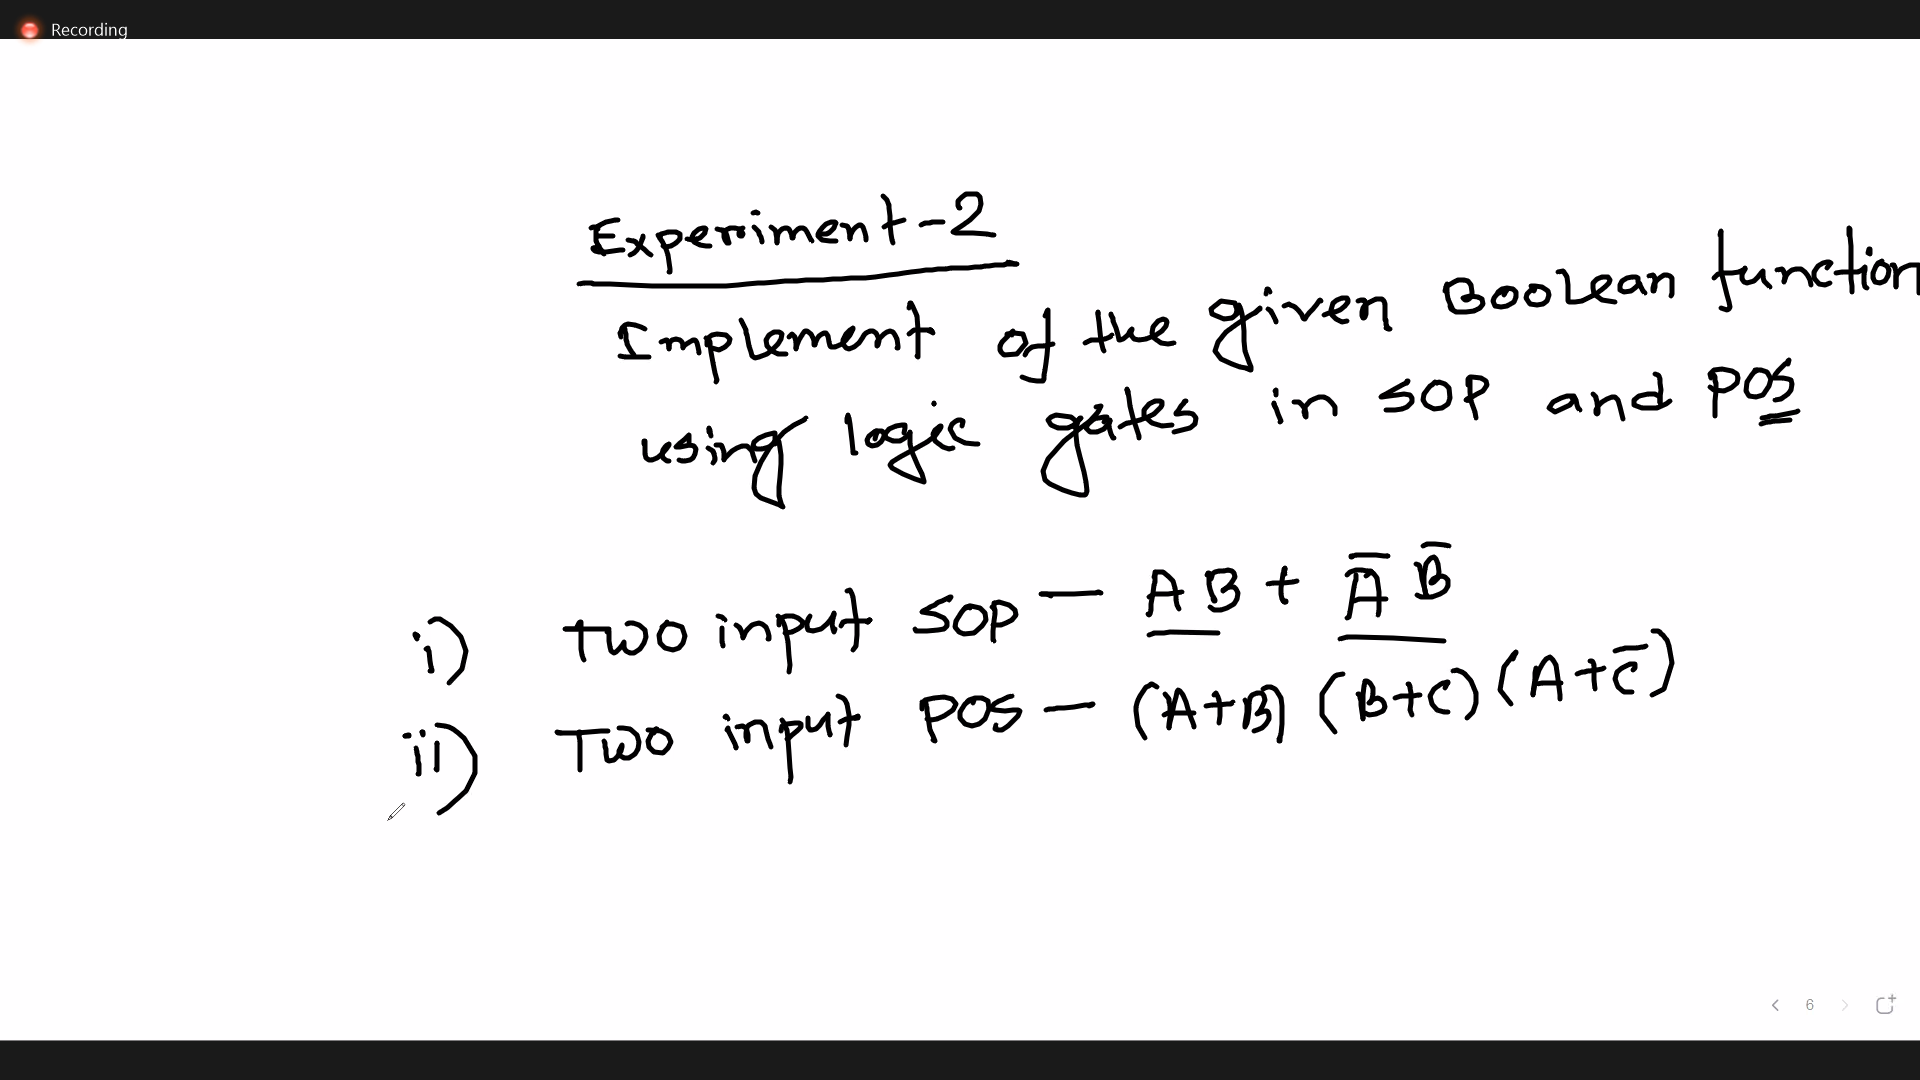 Recording
Experiment-2
Implement of the given Boolean function
using logic gates in SOP and POS
i) Two input SOP — AB + A̅ B̅
ii) Two input POS — (A+B) (B+C) (A+C̅)
6